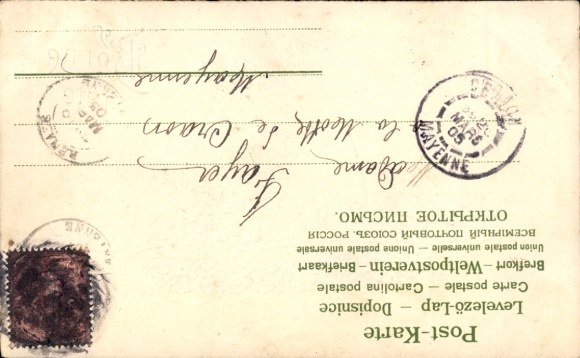 Post-Karte
Levelező-Lap — Dopisnice
Carte postale — Cartolina postale
Brefkort — Weltpostverein — Briefkaart
Union postale universelle — Unione postale universale
ВСЕМІРНЫЙ ПОЧТОВЫЙ СОЮЗЪ. РОССІЯ
ОТКРЫТОЕ ПИСЬМО.
Madame
Fayer
à la Motte de Craon
Mayenne
MARS
05
MAYENNE